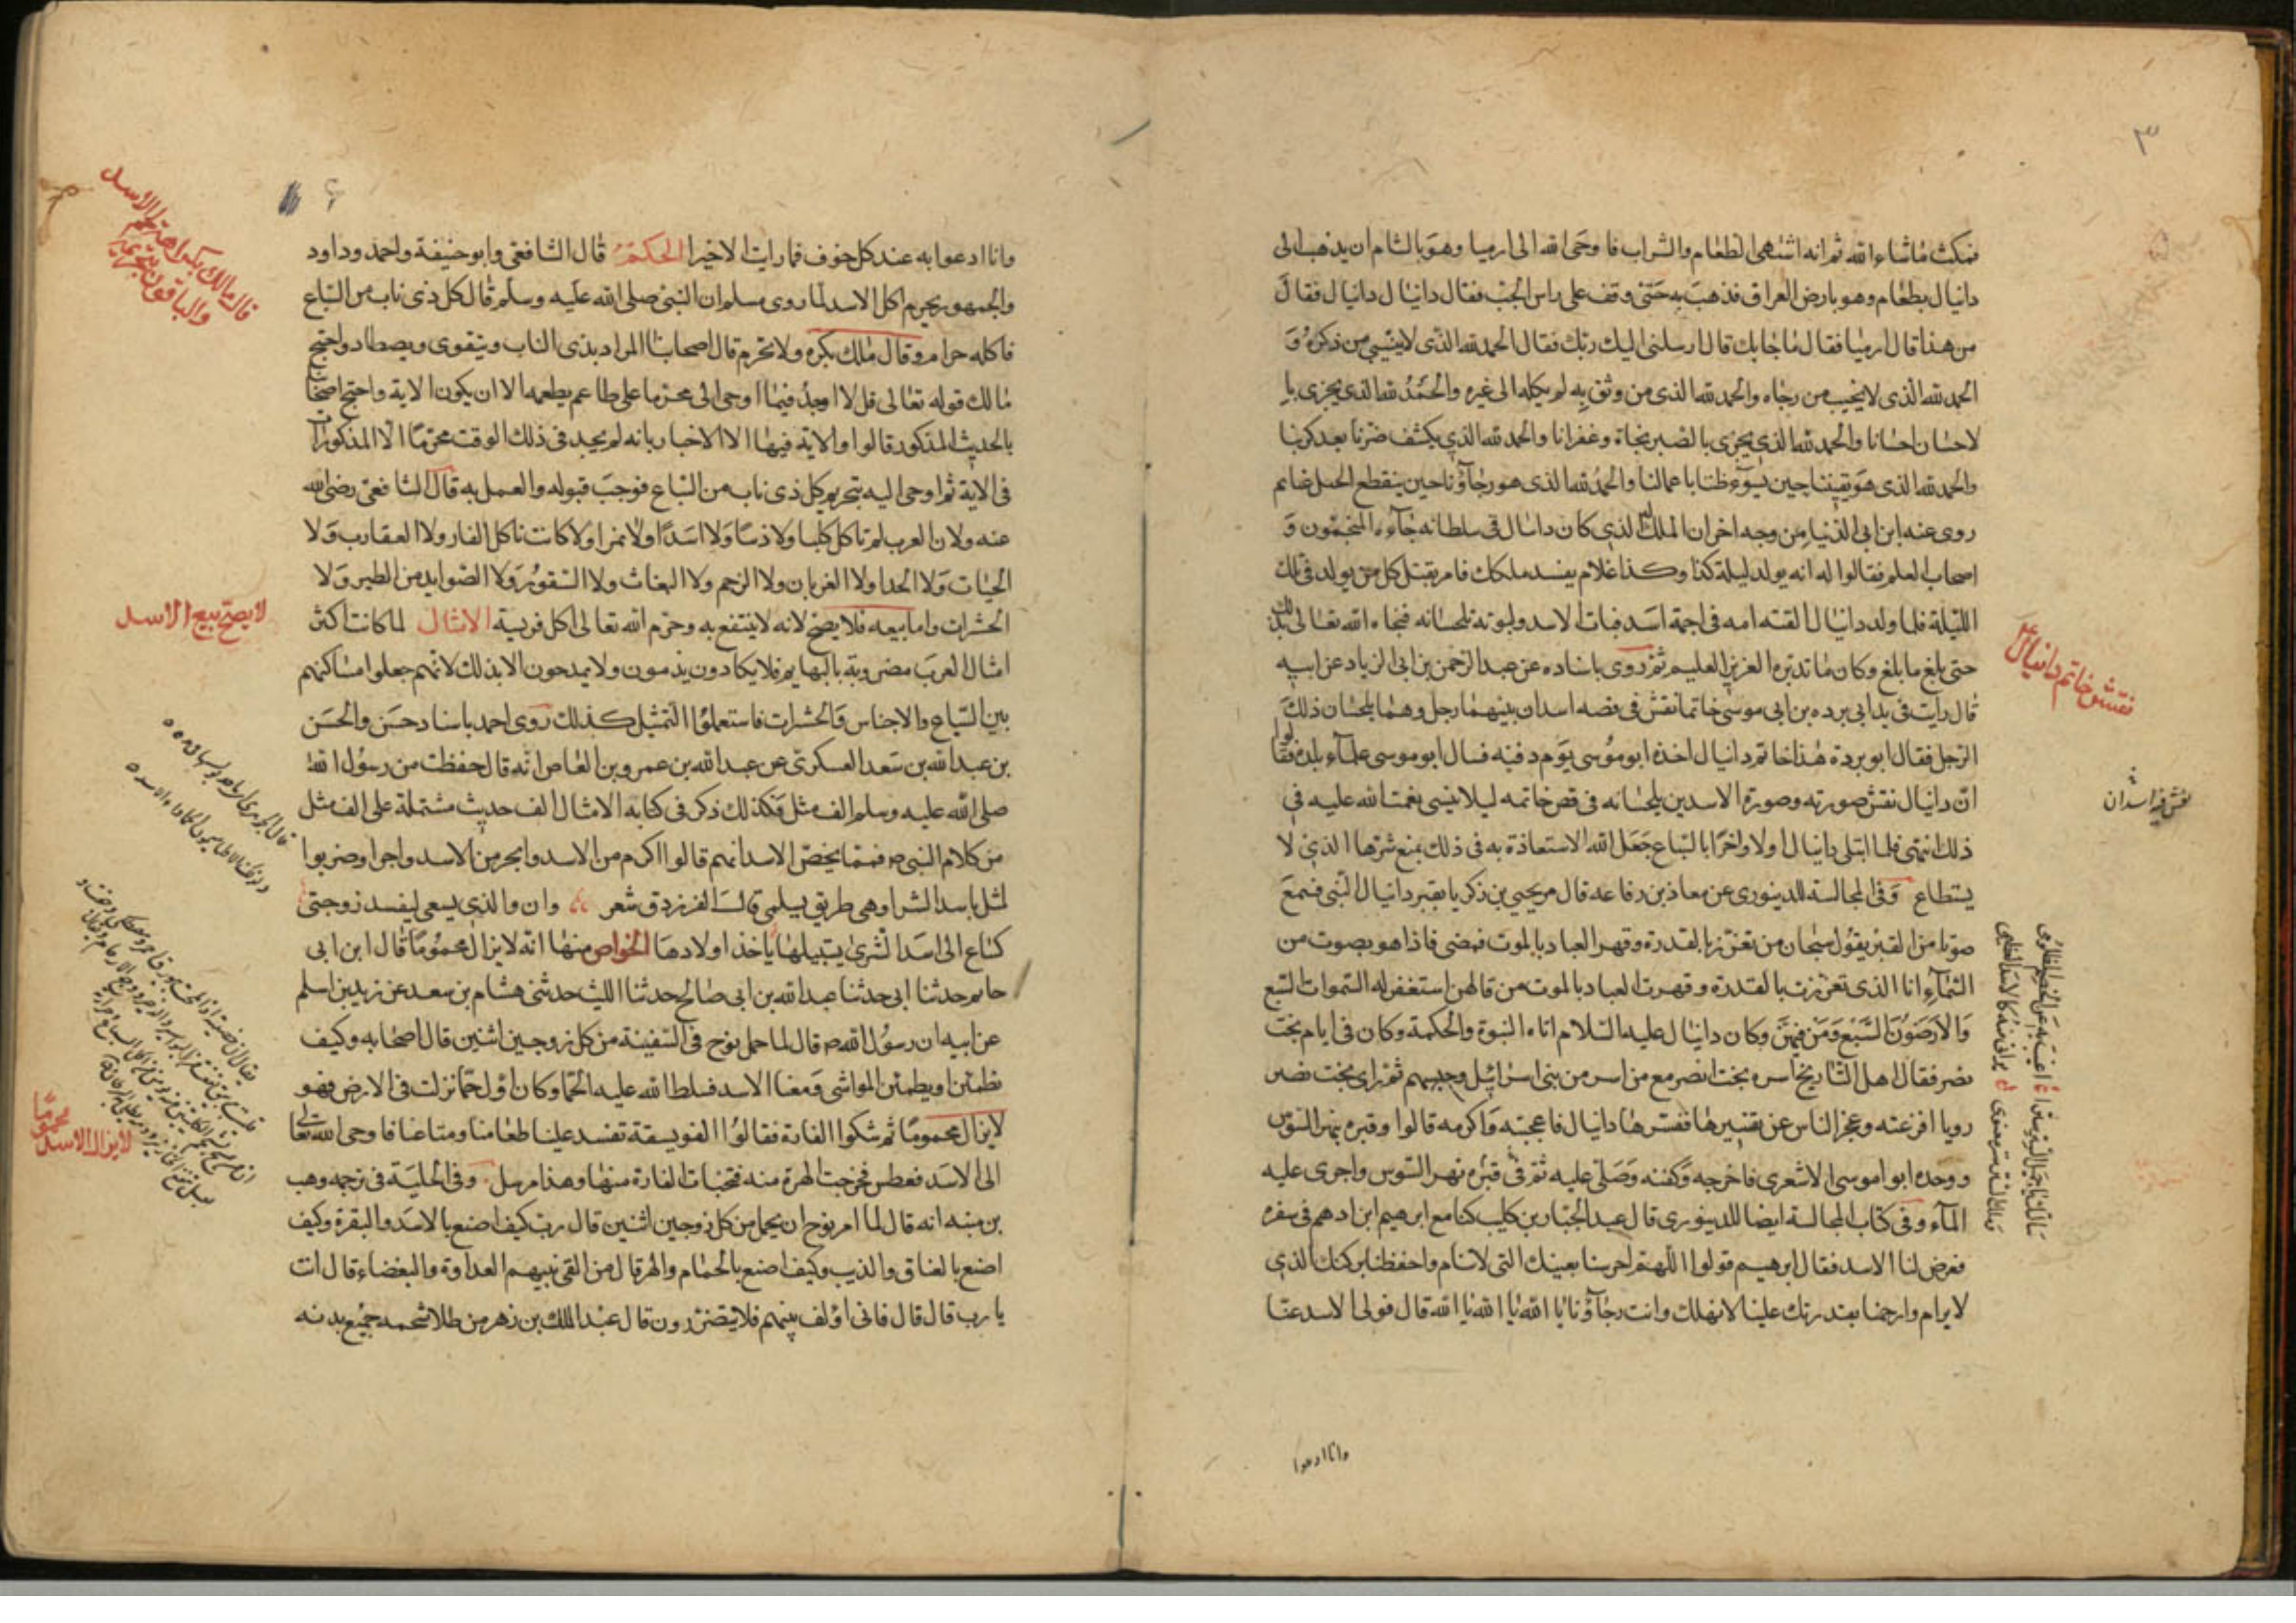 ٣
فمكث ماشاء الله ثم انه اشتهى الطعام والشراب فاوحى الله الى ارميا وهو بالشام ان يذهب الى
دانيال بطعام وهو بارض العراق فذهب به حتى وقف على راس الجب فقال دانيال دانيال فقال
من هذا قال ارميا فقال ماجابك قال ارسلنى اليك ربك فقال الحمد لله الذى لاينسى من ذكره و
الحمد لله الذى لايخيب من رجاه والحمد لله الذى من وثق به لم يكله الى غيره والحمد لله الذى يجزى با
لاحسان احسانا والحمد لله الذى يجزى بالصبر نجاة وغفرانا والحمد لله الذى يكشف ضرنا بعد كربنا
والحمد لله الذى هو ثقتنا حين يسوء ظننا باعمالنا والحمد لله الذى هو رجاؤنا حين ينقطع الحبل
روى عنه ابن ابى الدنيا من وجه اخر ان الملك الذى كان دانيال فى سلطانه جاءه المنجمون و
اصحاب العلم فقالوا له انه يولد ليلة كذا وكذا غلام يفسد ملكك فامر بقتل كل من يولد فى تلك
الليلة فلما ولد دانيال القته امه فى اجمة اسد فبات الاسد ولبوته يلحسانه فنجاه الله تعالى بذلك
حتى بلغ ما بلغ وكان ماقدره العزيز العليم ثم روى باسناده عن عبد الرحمن بن ابى الزياد عن ابيه
قال رايت فى يد ابى برده بن ابى موسى خاتما نقش فى فصه اسدان بينهما رجل وهما يلحسان ذلك
الرجل فقال ابو بردة هذا خاتم دانيال اخذه ابو موسى يوم دفنه فسال ابو موسى علماء بلده فقالوا
ان دانيال نقش صورته وصورة الاسدين يلحسانه فى فص خاتمه ليلا ينسى نعمت الله عليه فى
ذلك انتهى فلما ابتلى دانيال اولا واخرا بالسباع جعل الله الاستعاذة به فى ذلك يمنع شرها الذى لا
يستطاع وفى المجالسة للدينورى عن معاذ بن رفاعه قال مر يحيى بن زكريا بقبر دانيال النبى فسمع
صوتا من القبر يقول سبحان من تعزز بالقدرة وقهر العباد بالموت فمضى فاذا هو بصوت من
السماء انا الذى تعززت بالقدرة وقهرت العباد بالموت من قالهن استغفر له السموات السبع
والارضون السبع ومن فيهن وكان دانيال عليه السلام اتاه النبوة والحكمة وكان فى ايام بخت
نصر فقال اهل التاريخ اسره بخت نصر مع من اسر من بنى اسرائيل وحبسهم ثم راى بخت نصر
رويا افزعته وعجز الناس عن تفسيرها ففسرها دانيال فاعجبته واكرمه قالوا وقبره بنهر السوس
ووجده ابو اموسى الاشعرى فاخرجه وكفنه وصلى عليه ثم قبره نهر السوس واجرى عليه
الماء وفى كتاب المجالسة ايضا للدينورى قال عبد الجبار بن كليب كنا مع ابرهيم ابن ادهم فى سفره
فعرض لنا الاسد فقال ابرهيم قولوا اللهم احرسنا بعينك التى لاتنام واحفظنا بركنك الذى
لايرام وارحمنا بقدرتك علينا لانهلك وانت رجاؤنا يا الله يا الله يا الله قال فولى الاسد عنا
وانا ادعوا
نقش خاتم دانيال
نقش فيه اسدان
وانا ادعوا به عند كل خوف فمارايت الاخيرا الحكم قال الشافعى وابو حنيفة واحمد وداود
والجمهور يحرم اكل الاسد لما روى مسلم ان النبى صلى الله عليه وسلم قال كل ذى ناب من السباع
فاكله حرام وقال مالك يكره ولا يحرم قال اصحابنا المراد بذى الناب ويتقوى ويصطاد واحتج
مالك قوله تعالى قل لا اجد فيما اوحى الى محرما على طاعم يطعمه الا ان يكون الاية واحتج اصحابنا
بالحديث المذكور قالوا والاية فيها الا الاخبار بانه لم يجد فى ذلك الوقت محرما الا المذكورات
فى الاية ثم اوحى اليه بتحريم كل ذى ناب من السباع فوجب قبوله والعمل به قال الشافعى رضى الله
عنه ولان العرب لم تاكل كلبا ولا ذئبا ولا اسدا ولا نمرا ولا كانت تاكل الفار ولا العقارب ولا
الحيات ولا الحدا ولا الغربان ولا الرحم ولا البغاث ولا الصقور ولا الصوايد من الطير ولا
الحشرات واما بيعه فلا يصح لانه لاينتفع به وحرم الله تعالى اكل فريسة الامثال لما كانت اكثر
امثال العرب مضروبة بالبهايم فلا يكادون يذمون ولا يمدحون الا بذلك لانهم جعلوا مساكنهم
بين السباع والاجناس والحشرات فاستعملوا التمثيل كذلك روى احمد باسناد حسن والحسن
بن عبد الله بن سعد العسكرى عن عبد الله بن عمرو بن العاص انه قال حفظت من رسول الله
صلى الله عليه وسلم الف مثل فكذلك ذكر فى كتابه الامثال الف حديث مشتملة على الف مثل
من كلام النبى ص فمما يخص الاسد انهم قالوا اكرم من الاسد وابخر من الاسد واجرا وضربوا
لمثل باسد الشرا وهى طريق بسلمى قال الفرزدق شعر وان والذى يسعى ليفسد زوجتى
كساع الى اسد الشرى يستبيلها ياخذ اولادها الخواص منها انه لايزال محموما قال ابن ابى
حاتم حدثنا ابى حدثنا عبد الله بن ابى صالح حدثنا الليث حدثنى هشام بن سعد عن زيد بن اسلم
عن ابيه ان رسول الله ص قال لما حمل نوح فى السفينة من كل زوجين اثنين قال اصحابه وكيف
نطمئن او يطمئن المواشى ومعنا الاسد فسلط الله عليه الحمى وكان اول حما نزلت فى الارض فهو
لايزال محموما ثم شكوا الفارة فقالوا الفويسقة تفسد علينا طعامنا ومتاعنا فاوحى الله تعالى
الى الاسد فعطس فخرجت الهرة منه فتخبات الفارة منها وهذا مرسل وفى الحلية فى ترجمه وهب
بن منبه انه قال لما امر نوح ان يحمل من كل زوجين اثنين قال رب كيف اصنع بالاسد والبقرة وكيف
اصنع بالعناق والذيب وكيف اصنع بالحمام والهر قال من القى بينهم العداوة والبغضاء قال انت
يا رب قال قال فانى اؤلف بينهم فلا يتضررون قال عبد الملك بن زهر من طلا شحمه جميع بدنه
قال مالك بكراهة لحم الاسد
والباقون بتحريمه
لايصح بيع الاسد
لايزال الاسد محموما